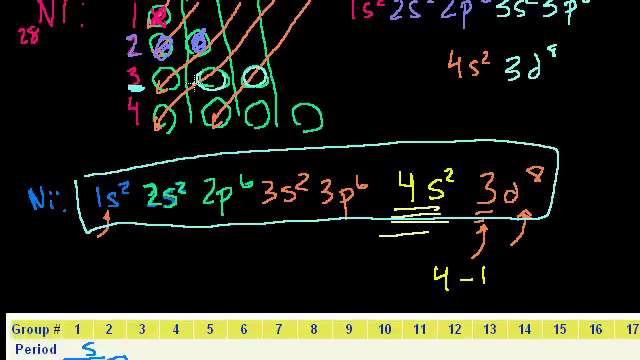 Ni:
28
1
2
3
4
1s² 2s² 2p⁶ 3s² 3p⁶
4s² 3d⁸
Ni: 1s² 2s² 2p⁶ 3s² 3p⁶ 4s² 3d⁸
4 - 1
Group # 1 2 3 4 5 6 7 8 9 10 11 12 13 14 15 16 17
Period
S